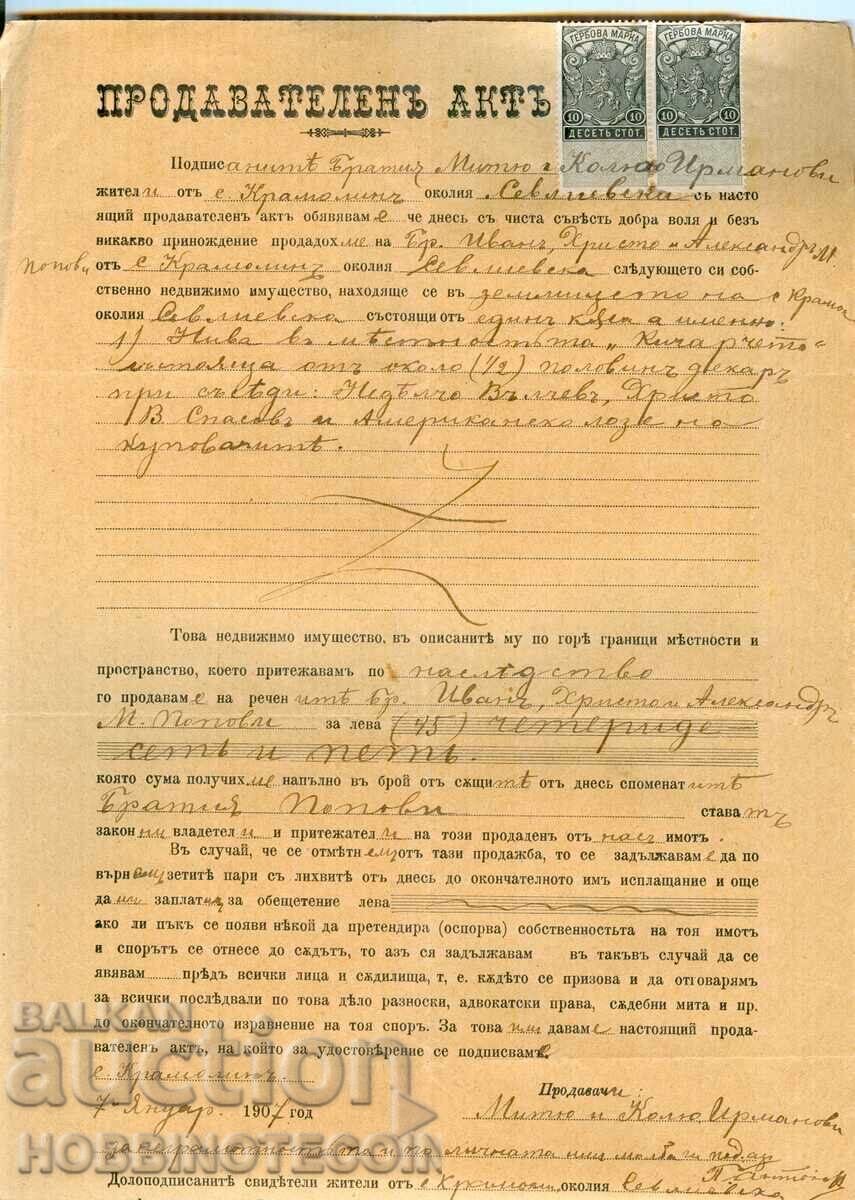 ГЕРБОВА МАРКА ГЕРБОВА МАРКА
10 10 10 10
ДЕСЕТЬ СТОТ. ДЕСЕТЬ СТОТ.
ПРОДАВАТЕЛЕНЪ АКТЪ
Подписанитѣ Братия Митю и Колю Ирманови
жители отъ с Крамолинъ околия Севлиевска съ насто
ящий продавателенъ актъ обявяваме че днесь съ чиста съвѣсть добра воля и безъ
никакво принождение продадохме на Бр. Иванъ, Христо и Александръ М.
Попови отъ с Крамолинъ околия Севлиевска следующето си соб-
ственно недвижимо имущество, находяще се въ землището на с Крамол
околия Севлиевска състоящи отъ единъ къса а именно:
1) Нива въ мѣстностьта „Кичарчето“
състояща отъ около (1/2) половинъ декаръ
при съсѣди: Недѣлчо Вълчевъ, Христо
В. Спасовъ и Американско лозе на
купувачитѣ.
Това недвижимо имущество, въ описанитѣ му по горѣ граници мѣстности и
пространство, което притежавамъ по наслѣдство
го продаваме на реченитѣ Бр. Иванъ, Христо и Александръ
М. Попови за лева (45) четериде
сеть и петь.
която сума получихме напълно въ брой отъ сѫщитѣ отъ днесь споменатитѣ
Братия Попови ставатъ
законни владетели и притежатели на този продаденъ отъ насъ имотъ.
Въ случай, че се отметнемъ отъ тази продажба, то се задължаваме да по
върнемъ зетитѣ пари съ лихвитѣ отъ днесь до окончателното имъ исплащание и още
да им заплатимъ за обещетение лева
ако ли пъкъ се появи нѣкой да претендира (оспорва) собственностьта на тоя имотъ
и спорътъ се отнесе до сѫдътъ, то азъ ся задължавам въ такъвъ случай да се
явявам прѣдъ всички лица и сѫдилища, т, е. кѫдето се призова и да отговарямъ
за всички последвали по това дѣло разноски, адвокатски права, сѫдебни мита и пр.
до окончателното изравнение на тоя споръ. За това им даваме настоящий прода-
вателенъ актъ, на който за удостовѣрение се подписваме
с. Крамолинъ.
7й Януар. 1907 год
Продавачи:
Митю и Колю Ирманови
за неграмотностьта и по личната им молба ги подп.
П.
Долоподписанитѣ свидѣтели жители отъ с околия Севлиевска
BALKAN
auction
HOBBINOTECON